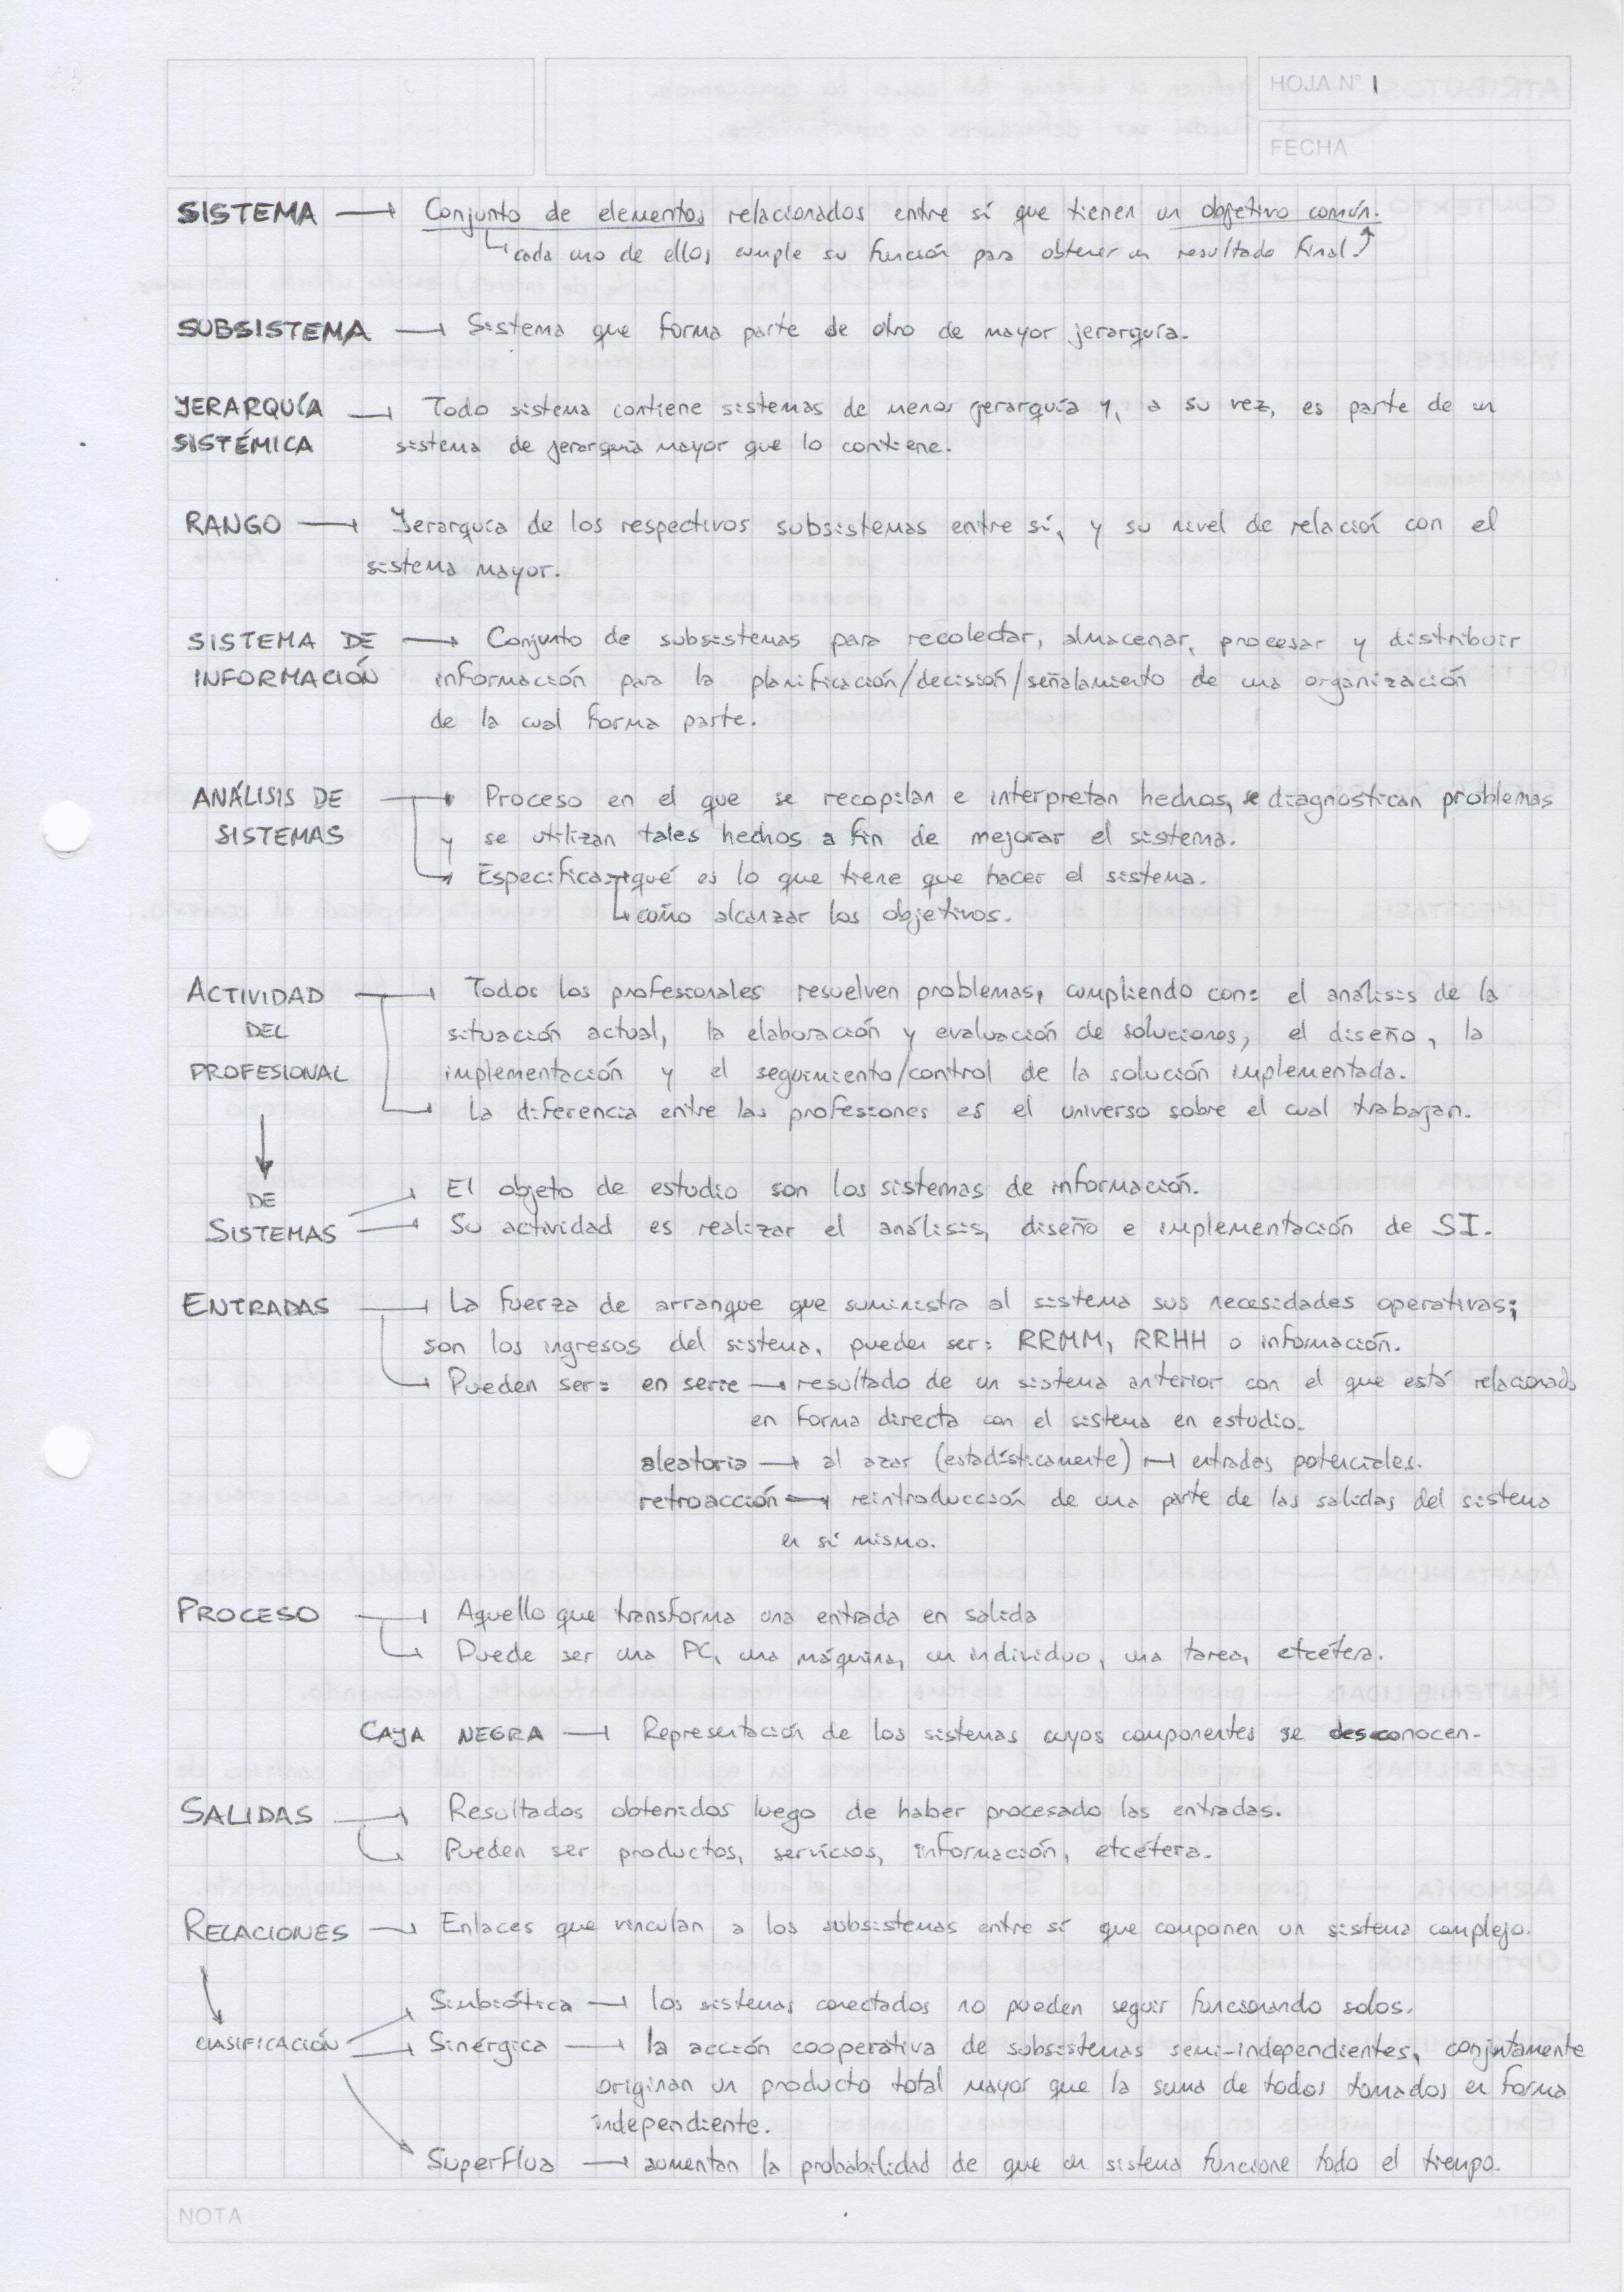 HOJA N° 1
FECHA
SISTEMA → Conjunto de elementos relacionados entre sí que tienen un objetivo común.
↳ cada uno de ellos cumple su función para obtener un resultado final ↑
SUBSISTEMA → Sistema que forma parte de otro de mayor jerarquía.
JERARQUÍA → Todo sistema contiene sistemas de menos jerarquía y, a su vez, es parte de un
SISTÉMICA sistema de jerarquía mayor que lo contiene.
RANGO → Jerarquía de los respectivos subsistemas entre sí, y su nivel de relación con el
sistema mayor.
SISTEMA DE → Conjunto de subsistemas para recolectar, almacenar, procesar y distribuir
INFORMACIÓN información para la planificación/decisión/señalamiento de una organización
de la cual forma parte.
ANÁLISIS DE → Proceso en el que se recopilan e interpretan hechos, se diagnostican problemas
SISTEMAS y se utilizan tales hechos a fin de mejorar el sistema.
→ Especifica → qué es lo que tiene que hacer el sistema.
↳ cómo alcanzar los objetivos.
ACTIVIDAD → Todos los profesionales resuelven problemas, cumpliendo con: el análisis de la
DEL situación actual, la elaboración y evaluación de soluciones, el diseño, la
PROFESIONAL implementación y el seguimiento/control de la solución implementada.
→ La diferencia entre las profesiones es el universo sobre el cual trabajan.
↓
DE → El objeto de estudio son los sistemas de información.
SISTEMAS → Su actividad es realizar el análisis, diseño e implementación de SI.
ENTRADAS → La fuerza de arranque que suministra al sistema sus necesidades operativas;
son los ingresos del sistema, pueden ser: RRMM, RRHH o información.
→ Pueden ser: en serie → resultado de un sistema anterior con el que está relacionado
en forma directa con el sistema en estudio.
aleatoria → al azar (estadísticamente) → entradas potenciales.
retroacción → reintroducción de una parte de las salidas del sistema
en sí mismo.
PROCESO → Aquello que transforma una entrada en salida
→ Puede ser una PC, una máquina, un individuo, una tarea, etcétera.
CAJA NEGRA → Representación de los sistemas cuyos componentes se desconocen.
SALIDAS → Resultados obtenidos luego de haber procesado las entradas.
→ Pueden ser productos, servicios, información, etcétera.
RELACIONES → Enlaces que vinculan a los subsistemas entre sí que componen un sistema complejo.
↓ Simbiótica → los sistemas conectados no pueden seguir funcionando solos.
CLASIFICACIÓN → Sinérgica → la acción cooperativa de subsistemas semi-independientes, conjuntamente
originan un producto total mayor que la suma de todos tomados en forma
independiente.
Superflua → aumentan la probabilidad de que un sistema funcione todo el tiempo.
NOTA